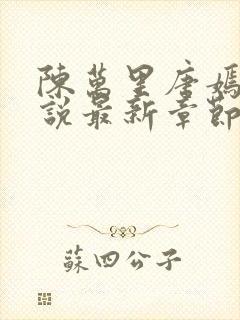 陳萬里唐嫣
說最新章節
蘇四公子